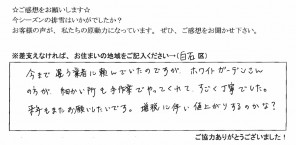 ☆ご感想をお願いします☆
今シーズンの排雪はいかがでしたか?
お客様の声が、私たちの原動力になっています。 ぜひ、ご感想をお聞かせ下さい。
※差支えなければ、お住まいの地域をご記入ください→(白石区)
今まで違う業者に頼んでいたのですが、ホワイトガーデンさん
の方が、細かい所も手作業でやってくれて、すごく丁寧でした。
来年もまたお願いしたいです。 増税に伴い値上がりするのかな?
ご協力ありがとうございました!